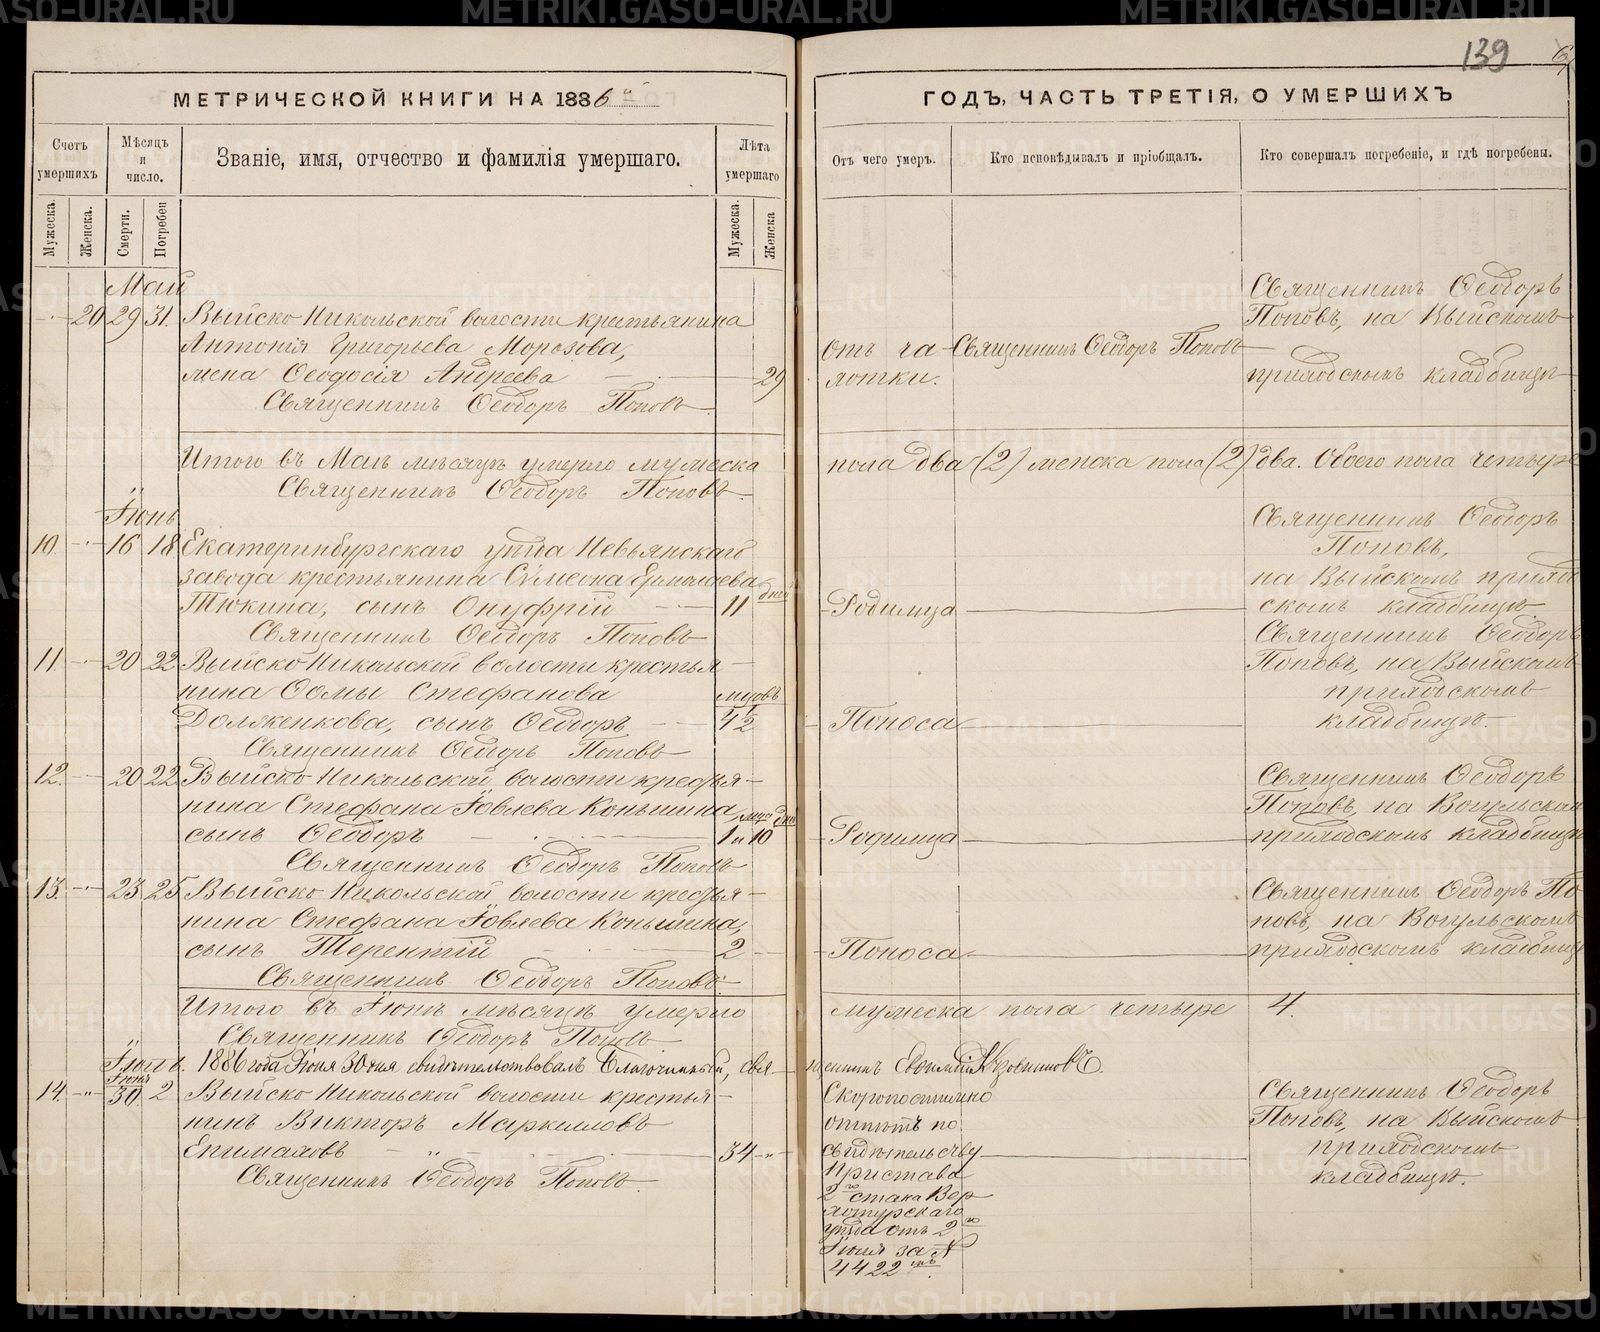 139
МЕТРИЧЕСКОЙ КНИГИ НА 1886й
ГОДЪ, ЧАСТЬ ТРЕТІЯ, О УМЕРШИХЪ
Счетъ умершихъ
Мѣсяцъ и число.
Званіе, имя, отчество и фамилія умершаго.
Лѣта умершаго
Отъ чего умеръ.
Кто исповѣдывалъ и пріобщалъ.
Кто совершалъ погребеніе, и гдѣ погребены.
Мужеска.
Женска.
Смерти.
Погребен
Мужеска.
Женска
Май
20 29 31. Выйско Никольской волости крестьянина
Антонія Григорьева Морозова,
жена Ѳеодосія Андреева 29
Священникъ Ѳеодоръ Поповъ
отъ чахотки.
Священникъ Ѳеодоръ Поповъ
Священникъ Ѳеодоръ
Поповъ, на Выйскомъ
приходскомъ кладбищѣ
Итого въ Маѣ мѣсяцѣ умерло мужеска
пола два (2) женска пола (2) два. Обоего пола четыре
Священникъ Ѳеодоръ Поповъ
Іюнь
10. 16 18 Екатеринбургскаго уѣзда Невьянскаго
завода крестьянина Сѵмеона Ермолаева
Тюкина, сынъ Онуфрій 11 дней
Священникъ Ѳеодоръ Поповъ
Родимца
Священникъ Ѳеодоръ
Поповъ,
на Выйскомъ приход
скомъ кладбищѣ
11. 20 22 Выйско Никольской волости крестья
нина Ѳомы Стефанова
Долженкова, сынъ Ѳеодоръ 4½ мцовъ
Священникъ Ѳеодоръ Поповъ
Поноса
Священникъ Ѳеодоръ
Поповъ, на Выйскомъ
приходскомъ
кладбищѣ.
12. 20 22 Выйско Никольской волости крестья
нина Стефана Іовлева Коньшина,
сынъ Ѳеодоръ 1 и 10
Священникъ Ѳеодоръ Поповъ
Родимца
Священникъ Ѳеодоръ
Поповъ, на Вогульскомъ
приходскомъ кладбищѣ
13. 23 25 Выйско Никольской волости крестья
нина Стефана Іовлева Коньшина,
сынъ Терентій 2
Священникъ Ѳеодоръ Поповъ
Поноса
Священникъ Ѳеодоръ По
повъ, на Вогульскомъ
приходскомъ кладбищѣ
Итого въ Іюнѣ мѣсяцѣ умерло
мужеска пола четыре 4.
Священникъ Ѳеодоръ Поповъ
Іюль. 1886 года Іюня 30 дня свидѣтельствовалъ Благочинный, свя
щенникъ Евѳимій
14. Іюнь 30. 2 Выйско Никольской волости крестья
нинъ Викторъ Маркелловъ
Епимаховъ 34
Священникъ Ѳеодоръ Поповъ
Скоропостижно
отпѣтъ по
свидѣтельству
Пристава
2го стана Вер
хотурскаго
уѣзда отъ 2го
Іюля за №
4422мъ.
Священникъ Ѳеодоръ
Поповъ, на Выйскомъ
приходскомъ
кладбищѣ.
METRIKI.GASO-URAL.RU